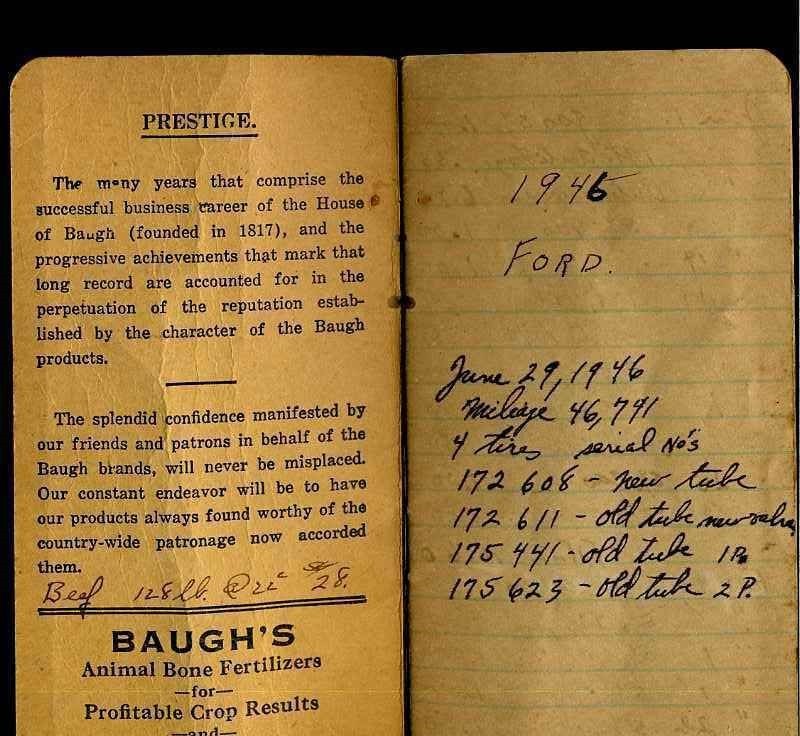 PRESTIGE.
The many years that comprise the
successful business career of the House
of Baugh (founded in 1817), and the
progressive achievements that mark that
long record are accounted for in the
perpetuation of the reputation estab-
lished by the character of the Baugh
products.
The splendid confidence manifested by
our friends and patrons in behalf of the
Baugh brands, will never be misplaced.
Our constant endeavor will be to have
our products always found worthy of the
country-wide patronage now accorded
them.
Beef 128 lb. @ 22¢ 28.
BAUGH'S
Animal Bone Fertilizers
—for—
Profitable Crop Results
—and—
1946
FORD.
June 29, 1946
Mileage 46,791
4 tires serial No's
172 608 - new tube
172 611 - old tube new
175 441 - old tube 1 P.
175 623 - old tube 2 P.